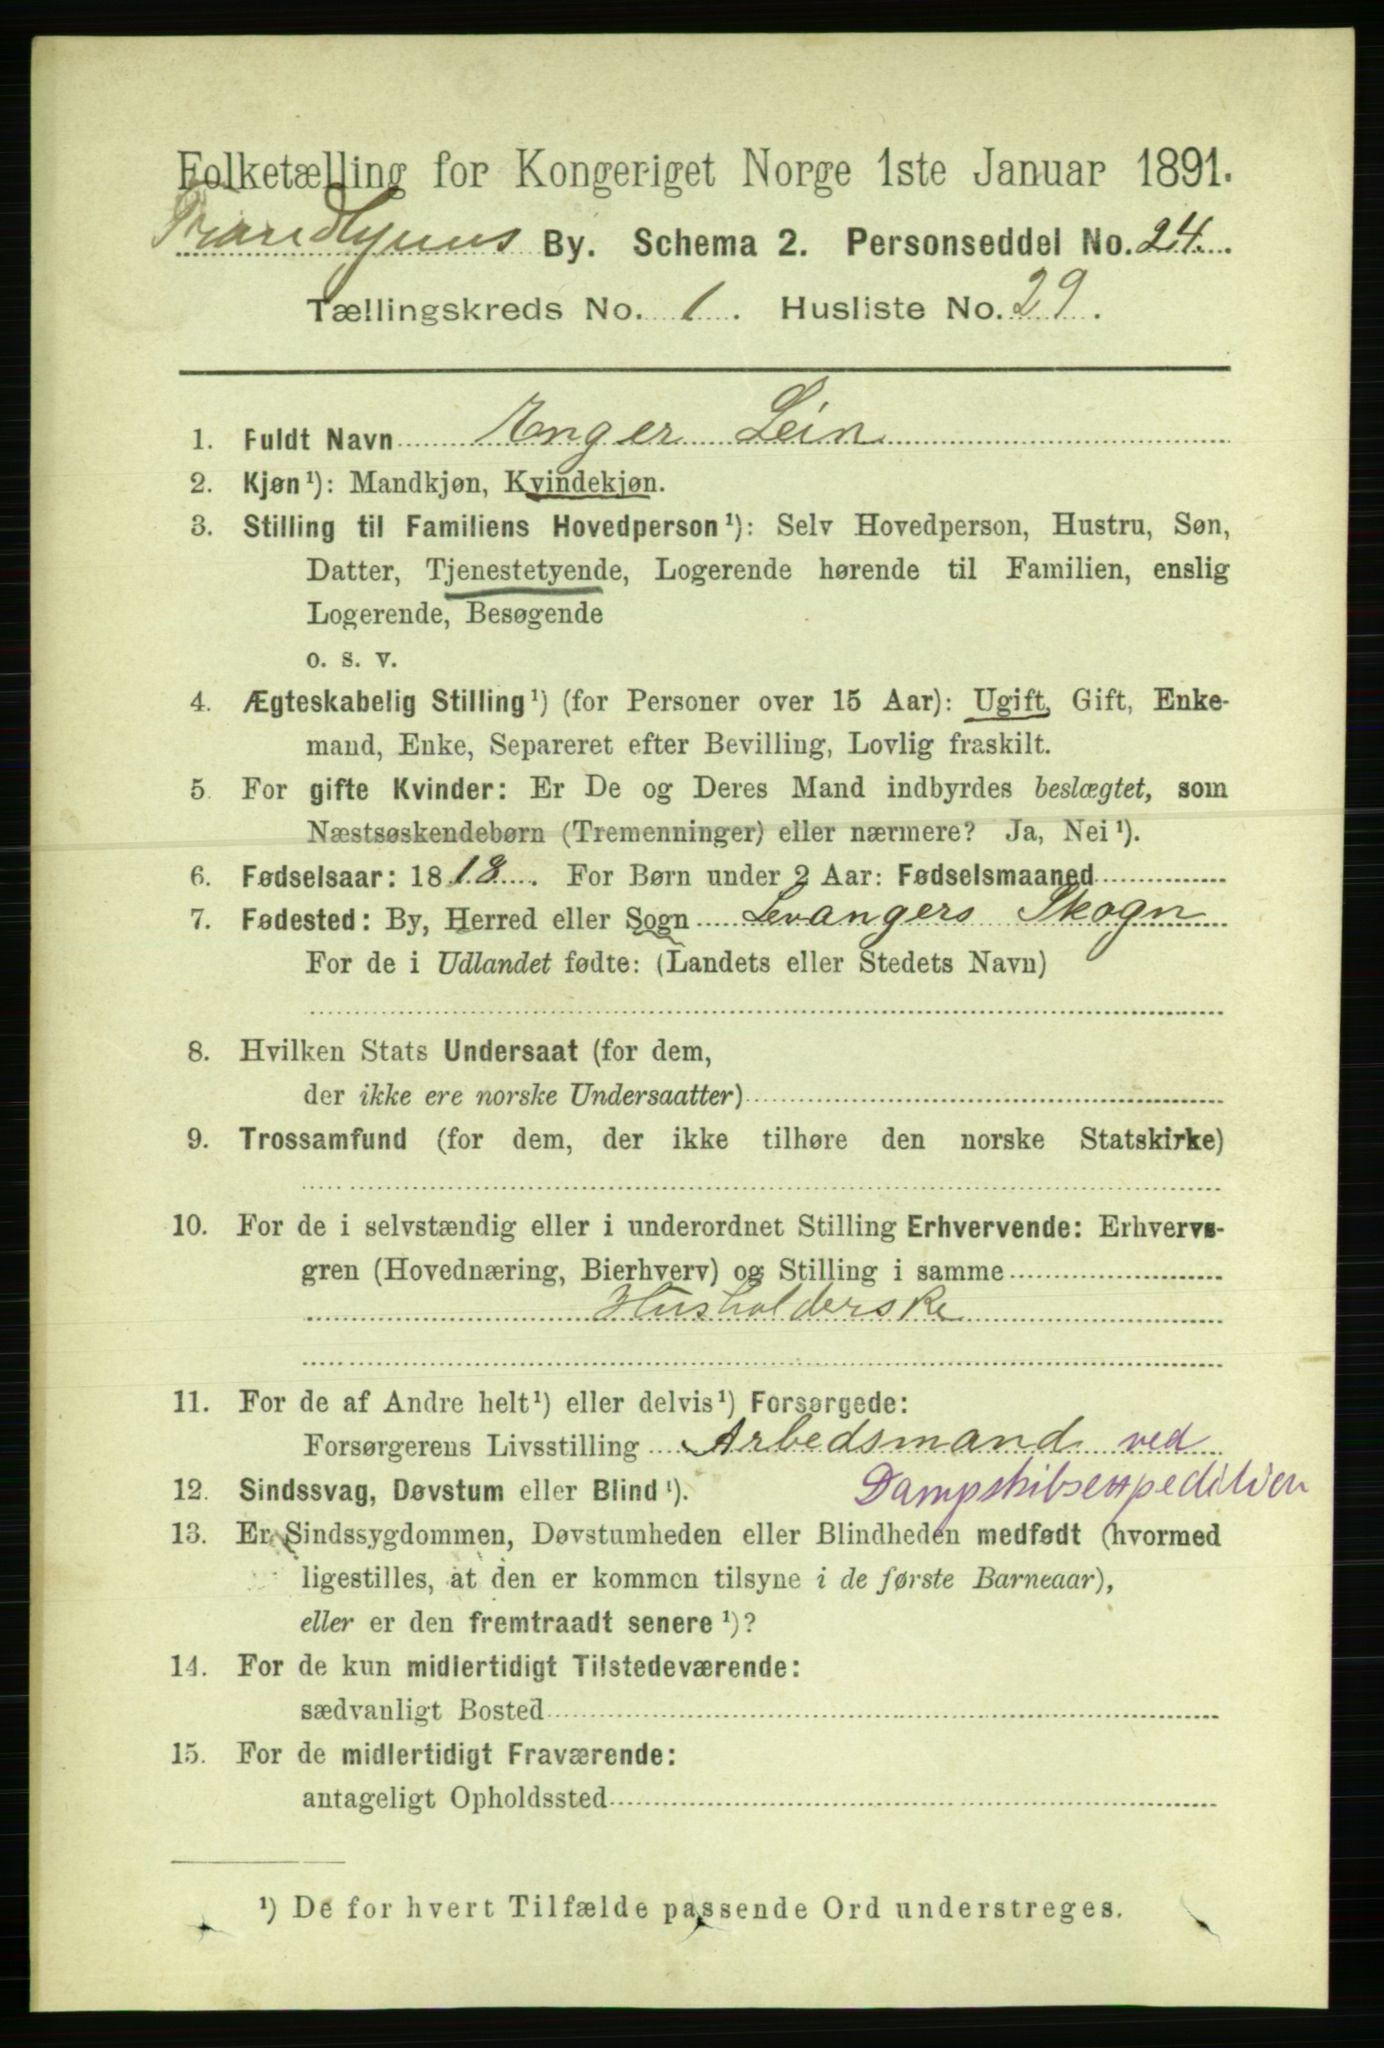 Folketælling for Kongeriget Norge 1ste Januar 1891.
Trondhjems By. Schema 2. Personseddel No. 24.
Tællingskreds No. 1. Husliste No. 29.
1. Fuldt Navn Enger Lein
2. Kjøn¹): Mandkjøn, Kvindekjøn.
3. Stilling til Familiens Hovedperson¹): Selv Hovedperson, Hustru, Søn,
Datter, Tjenestetyende, Logerende hørende til Familien, enslig
Logerende, Besøgende
o. s. v.
4. Ægteskabelig Stilling¹) (for Personer over 15 Aar): Ugift, Gift, Enke-
mand, Enke, Separeret efter Bevilling, Lovlig fraskilt.
5. For gifte Kvinder: Er De og Deres Mand indbyrdes beslægtet, som
Næstsøskendebørn (Tremenninger) eller nærmere? Ja, Nei¹).
6. Fødselsaar: 1818. For Børn under 2 Aar: Fødselsmaaned
7. Fødested: By, Herred eller Sogn Levangers Skogn
For de i Udlandet fødte: (Landets eller Stedets Navn)
8. Hvilken Stats Undersaat (for dem,
der ikke ere norske Undersaatter)
9. Trossamfund (for dem, der ikke tilhøre den norske Statskirke)
10. For de i selvstændig eller i underordnet Stilling Erhvervende: Erhvervs-
gren (Hovednæring, Bierhverv) og Stilling i samme
Husholderske
11. For de af Andre helt¹) eller delvis¹) Forsørgede:
Forsørgerens Livsstilling Arbedsmand ved
Dampskibsexpeditien
12. Sindssvag, Døvstum eller Blind¹).
13. Er Sindssygdommen, Døvstumheden eller Blindheden medfødt (hvormed
ligestilles, at den er kommen tilsyne i de første Barneaar),
eller er den fremtraadt senere¹)?
14. For de kun midlertidigt Tilstedeværende:
sædvanligt Bosted
15. For de midlertidigt Fraværende:
antageligt Opholdssted
¹) De for hvert Tilfælde passende Ord understreges.